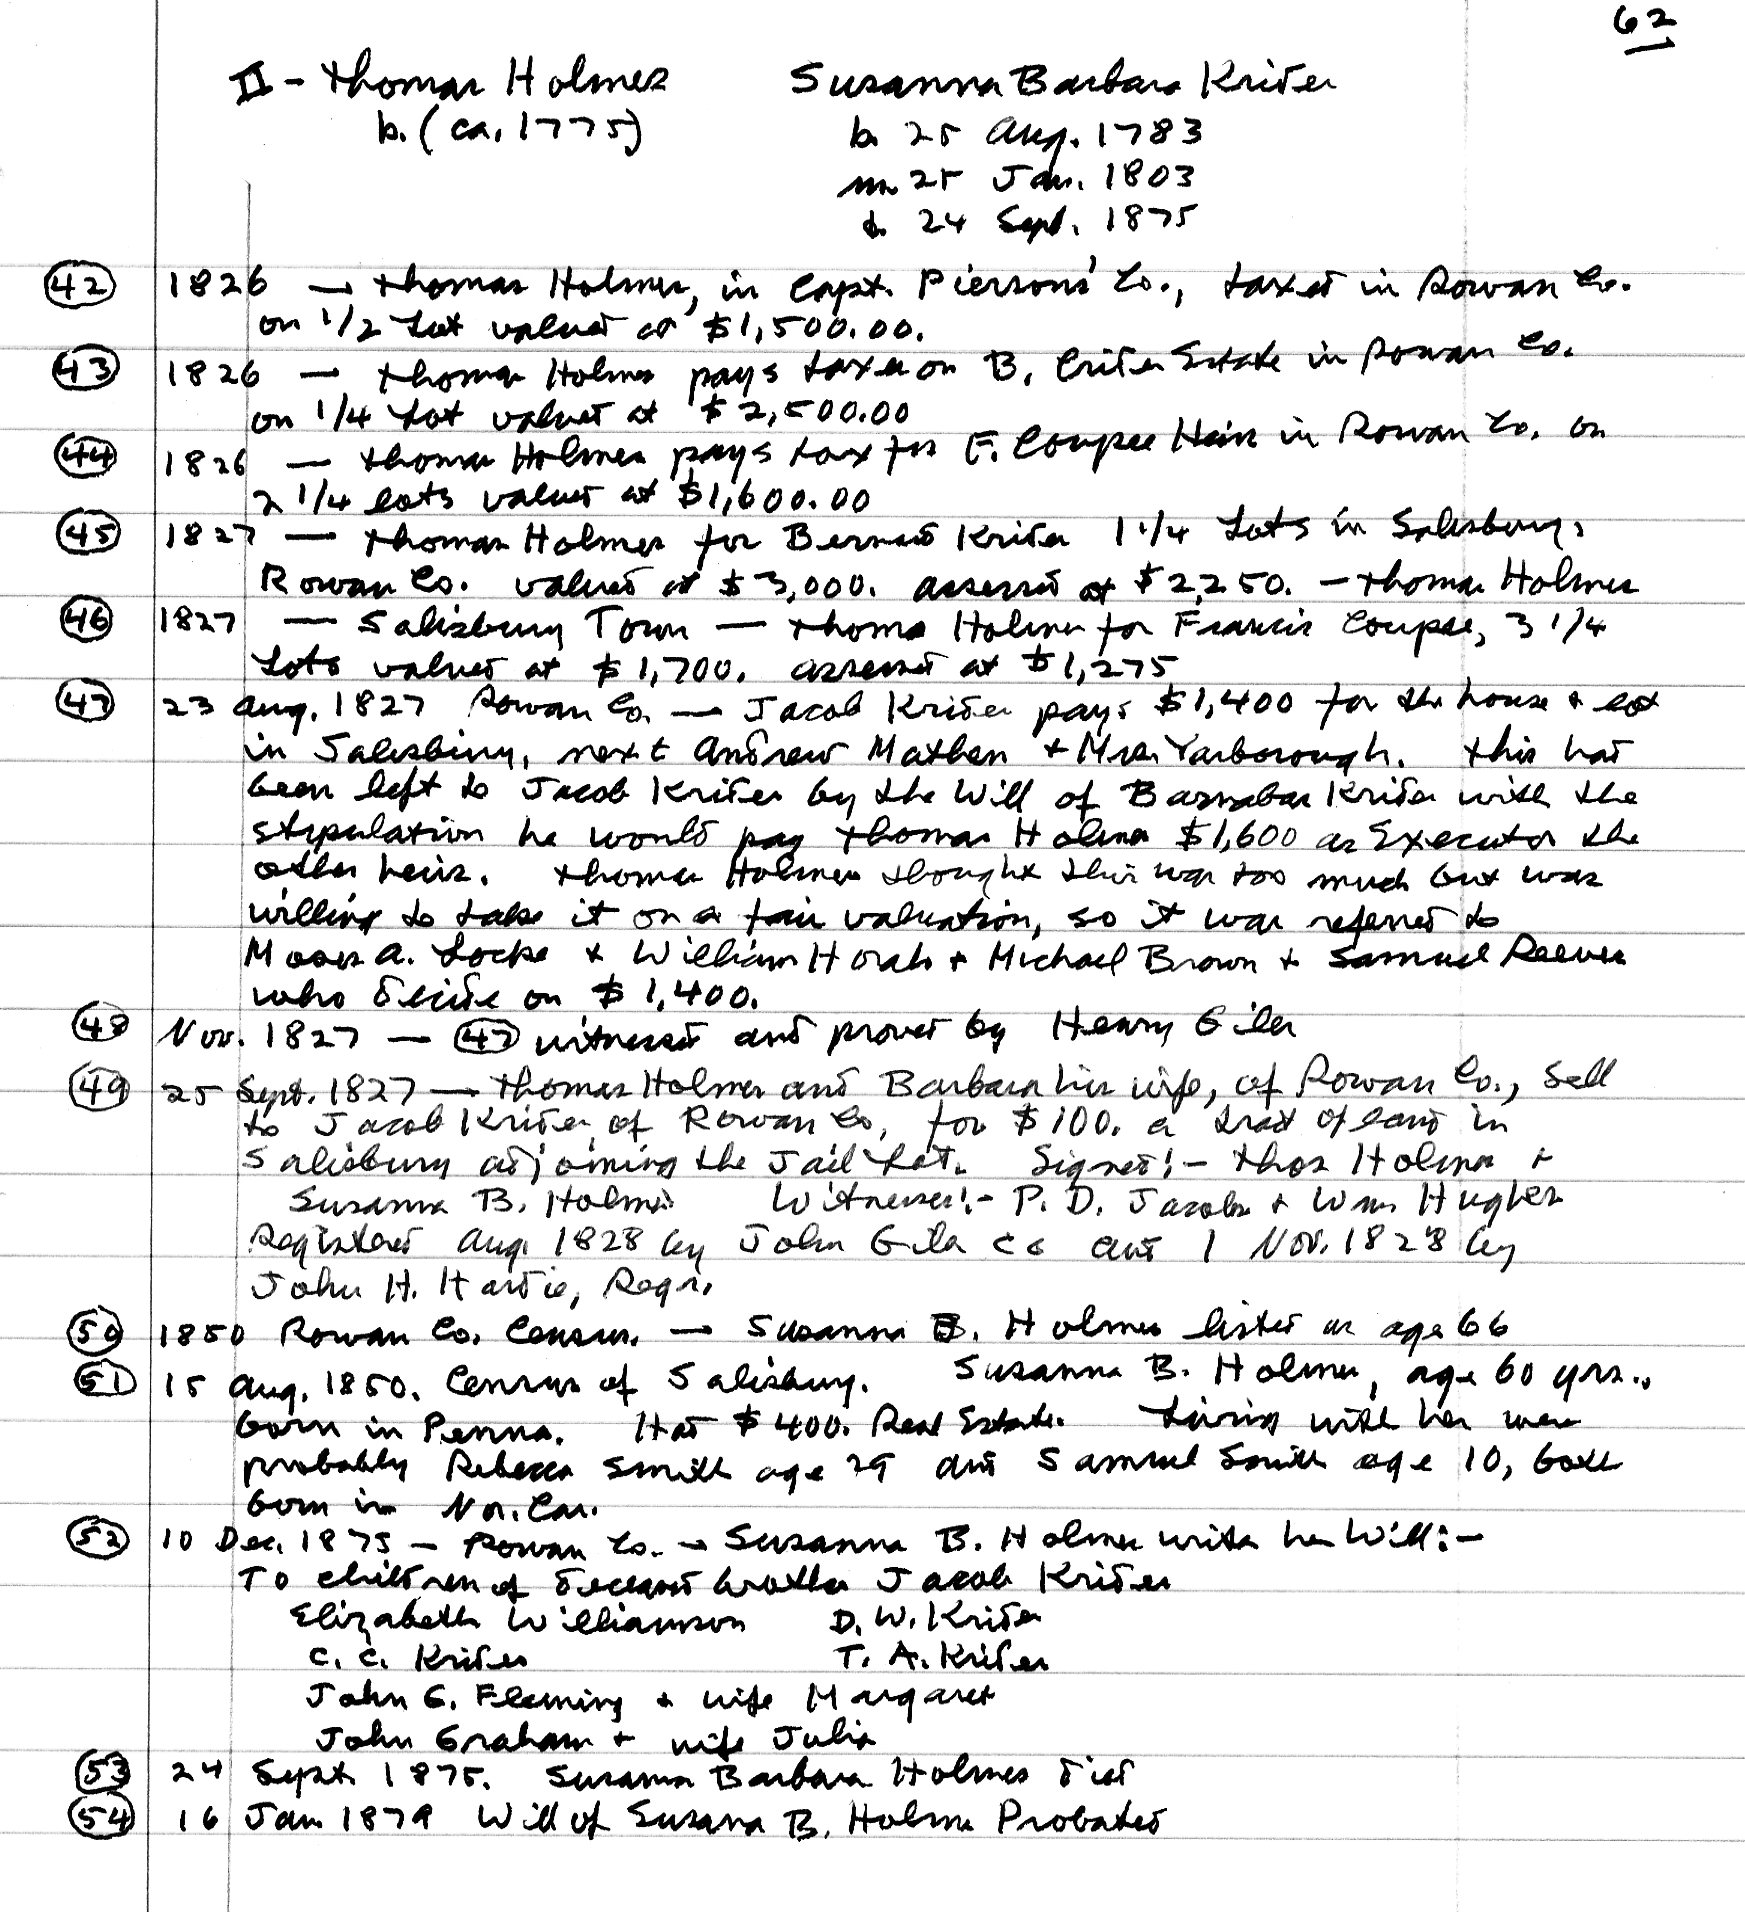 62
II - Thomas Holmes Susanna Barbara Krider
b. (ca. 1775) b. 25 Aug. 1783
m. 25 Jan. 1803
d. 24 Sept. 1875
42 1826 — Thomas Holmes, in Capt. Piersons' Co., taxed in Rowan Co.
on 1/2 Lot valued at $1,500.00.
43 1826 — Thomas Holmes pays taxes on B. Crider Estate in Rowan Co.
on 1/4 Lot valued at $2,500.00
44 1826 — Thomas Holmes pays tax for F. Coupee Heirs in Rowan Co. on
2 1/4 lots valued at $1,600.00
45 1827 — Thomas Holmes for Bernard Krider 1 1/4 Lots in Salisbury,
Rowan Co. valued at $3,000. assessed at $2,250. — Thomas Holmes
46 1827 — Salisbury Town — Thomas Holmes for Francis Coupee, 3 1/4
Lots valued at $1,700. assessed at $1,275
47 23 Aug. 1827 Rowan Co. — Jacob Krider pays $1,400 for the house & lot
in Salisbury, next Andrew Mathen & Mrs. Yarborough. This had
been left to Jacob Krider by the Will of Barnabas Krider with the
stipulation he would pay Thomas Holmes $1,600 as Executor the
other heirs. Thomas Holmes thought this was too much but was
willing to take it on a fair valuation, so it was referred to
Moses A. Locke & William Horah & Michael Brown & Samuel Reeves
who decide on $1,400.
48 Nov. 1827 — 47 witnessed and proved by Henry Giles
49 25 Sept. 1827 — Thomas Holmes and Barbara his wife, of Rowan Co., sell
to Jacob Krider, of Rowan Co, for $100. a tract of land in
Salisbury adjoining the Jail Lot. Signed:- Thos Holmes &
Susanna B. Holmes Witnesses:- P. D. Jacobs & Wm. Hughes
Registered Aug. 1828 by John Giles CC and 1 Nov. 1828 by
John H. Hardie, Regr.
50 1850 Rowan Co. Census. — Susanna B. Holmes listed as age 66
51 15 Aug. 1850. Census of Salisbury. Susanna B. Holmes, age 60 yrs.,
born in Penna. Had $400. Real Estate. Living with her were
probably Rebecca Smith age 29 and Samuel Smith age 10, both
born in No. Car.
52 10 Dec. 1875 — Rowan Co. — Susanna B. Holmes writes her Will:-
To children of deceased brother Jacob Krider
Elizabeth Williamson D. W. Krider
C. C. Krider T. A. Krider
John G. Fleming & wife Margaret
John Graham & wife Julia
53 24 Sept. 1875. Susanna Barbara Holmes died
54 16 Jan 1879 Will of Susana B. Holmes Probated